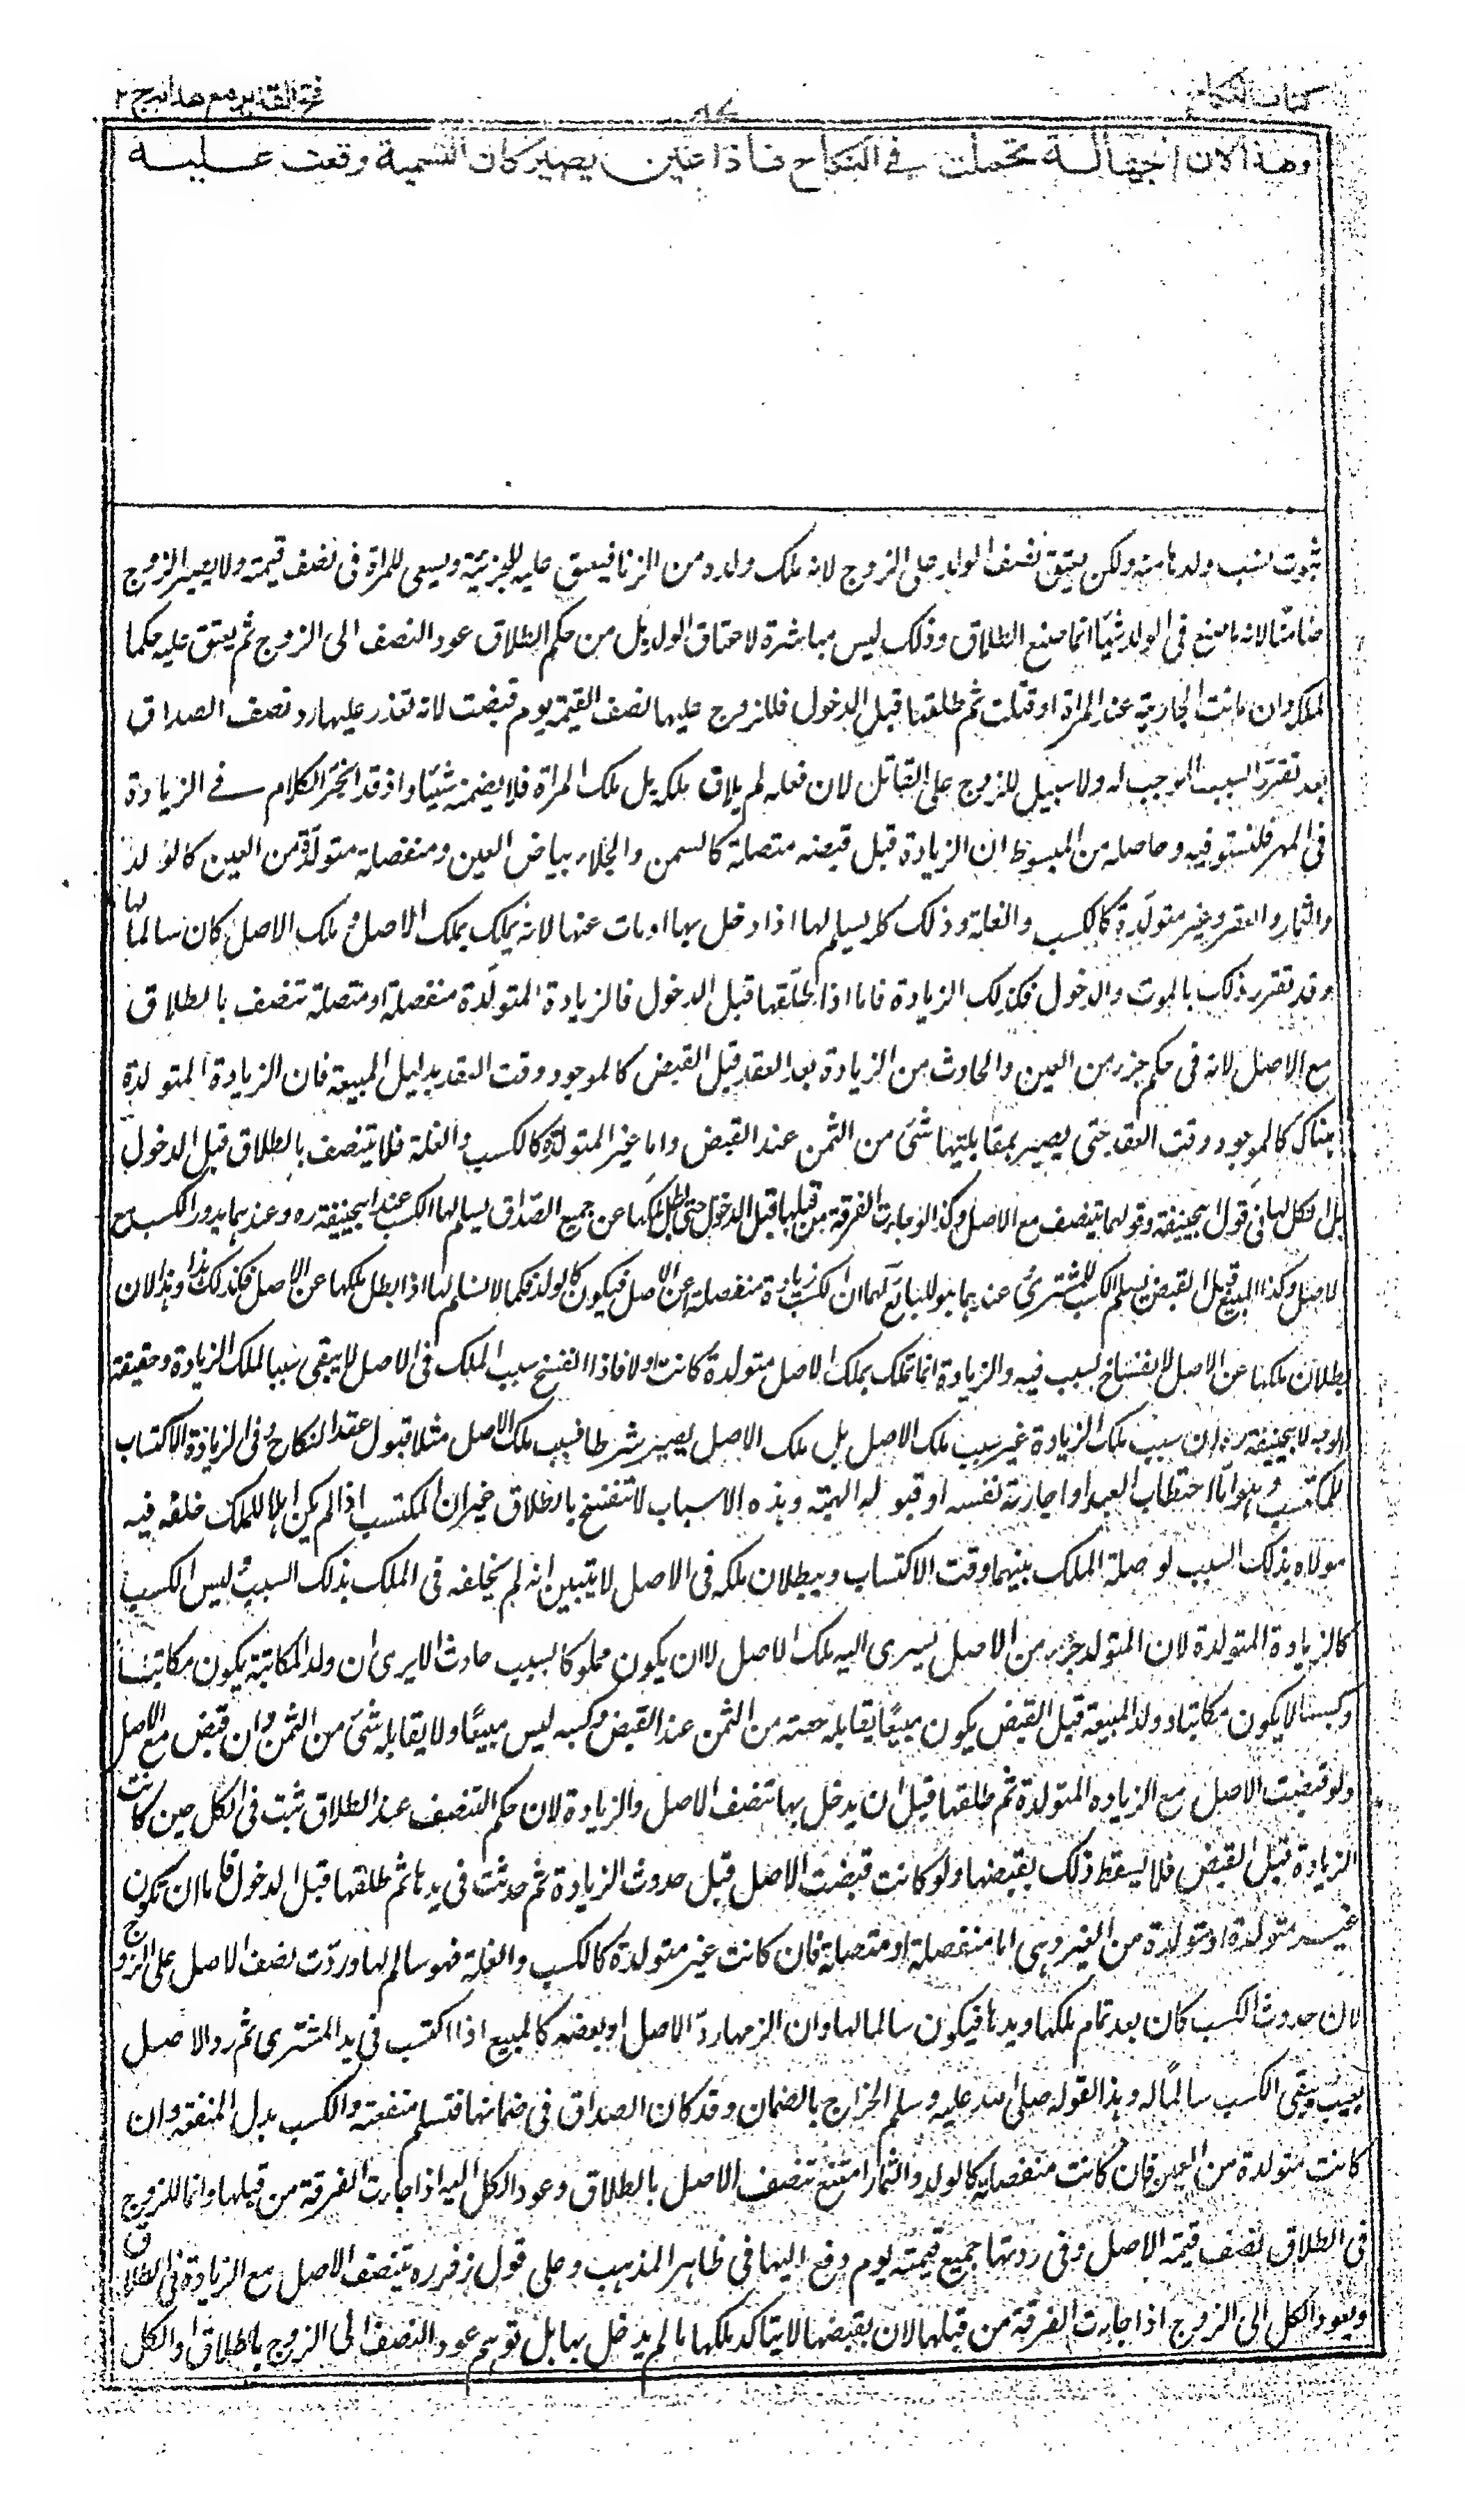 كتاب النكاح
فتح القدير مع هدايه ج ٢
وهذا لان الجهالة تحملت في النكاح فاذا عين يصير كان التسمية وقعت عليه
ثبوت نسب ولدها منه ولكن يعتق نصف الولد على الزوج لانه ملك ولده من الزنا فيعتق عليه للجزئية ويسعى للمراة فى نصف قيمته ولا يصير الزوج
ضامنا لانه ما صنع فى الولد شيئا انما صنع الطلاق وذلك ليس مباشرة لاعتاق الولد بل من حكم الطلاق عود النصف الى الزوج ثم يعتق عليه حكما
لملكه وان ماتت الجارية عند المراة او قتلت ثم طلقها قبل الدخول فللزوج عليها نصف القيمة يوم قبضت لانه تعذر عليها رد نصف الصداق
بعد تقرر السبب الموجب له ولا سبيل للزوج على القاتل لان فعله لم يلاق ملكه بل ملك المراة فلا يضمنه شيئا واذ قد انجر الكلام في الزيادة
فى المهر فلنستوفيه وحاصله من المبسوط ان الزيادة قبل قبضه متصلة كالسمن والجلاء بياض العين ومنفصلة متولدة من العين كالولد
والثمار والعقر وغير متولدة كالكسب والغلة وذلك كله يسلم لها اذا دخل بها او مات عنها لانه يملك بملك الاصل و ملك الاصل كان سالما لها
وقد تقرر ذلك بالموت والدخول فكذلك الزيادة فاما اذا طلقها قبل الدخول فالزيادة المتولدة منفصلة او متصلة تتنصف بالطلاق
مع الاصل لانه فى حكم جزء من العين والحادث من الزيادة بعد العقد قبل القبض كالموجود وقت العقد بدليل المبيعة فان الزيادة المتولدة
هناك كالموجود وقت العقد حتى يصير بمقابلتها شئ من الثمن عند القبض واما غير المتولدة كالكسب والغلة فلا يتنصف بالطلاق قبل الدخول
بل الكل لها فى قول ابيحنيفة وقولهما يتنصف مع الاصل وكذا لو جاءت الفرقة من قبلها قبل الدخول حتى بطل ملكها عن جميع الصداق يسلم لها الكسب عند ابيحنيفة ره وعندهما يدور الكسب مع
الاصل وكذا المبيع قبل القبض يسلم الكسب للمشترى عندهما هو للبائع لهما ان الكسب زيادة منفصلة عن الاصل فيكون كالولد فكما لا تسلم لها اذا بطل ملكها عن الاصل فكذلك هذا وهذا لان
بطلان ملكها عن الاصل لانفساخ السبب فيه والزيادة انما تملك بملك الاصل متولدة كانت اولا فاذا انفسخ سبب الملك فى الاصل لا يبقى سببا لملك الزيادة وحقيقة
الوجه لابيحنيفة ره ان سبب ملك الزيادة غير سبب ملك الاصل بل ملك الاصل يصير شرطا فسبب ملك الاصل مثلا قبول عقد النكاح وفى الزيادة الاكتساب
للمكتسب وهو اما احتطاب العبد او اجارته نفسه او قبوله الهبة وهذه الاسباب لا تنفسخ بالطلاق غير ان المكتسب اذا لم يكن اهلا للملك خلفه فيه
مولاه بذلك السبب لوصلة الملك بينهما وقت الاكتساب وببطلان ملكه فى الاصل لا يتبين انه لم يخلفه فى الملك بذلك السبب وليس الكسب
كالزيادة المتولدة لان المتولد جزء من الاصل يسرى اليه ملك الاصل لا ان يكون مملوكا بسبب حادث الا يرى ان ولد المكاتبة يكون مكاتبا
وكسبها لا يكون مكاتبا وولد المبيعة قبل القبض يكون مبيعا يقابله حصته من الثمن عند القبض وكسبه ليس مبيعا ولا يقابله شئ من الثمن وان قبض مع الاصل
ولو قبضت الاصل مع الزيادة المتولدة ثم طلقها قبل ان يدخل بها تتنصف الاصل والزيادة لان حكم التنصف عند الطلاق ثبت فى الكل حين كانت
الزيادة قبل القبض فلا يسقط ذلك بقبضها ولو كانت قبضت الاصل قبل حدوث الزيادة ثم حدثت فى يدها ثم طلقها قبل الدخول فاما ان تكون
غير متولدة او متولدة من العين وهى اما منفصلة او متصلة فان كانت غير متولدة كالكسب والغلة فهو سالم لها وردت نصف الاصل على الزوج
لان حدوث الكسب كان بعد تمام ملكها ويدها فيكون سالما لها وان الزمها رد الاصل او بعضه كالمبيع اذا اكتسب فى يد المشترى ثم رد الاصل
بعيب ويبقى الكسب سالما له وهذا لقوله صلى الله عليه وسلم الخراج بالضمان وقد كان الصداق فى ضمانها فتسلم منفعته والكسب بدل المنفعة وان
كانت متولدة من العين فان كانت منفصلة كالولد والثمار امتنع تنصف الاصل بالطلاق وعود الكل اليه اذا جاءت الفرقة من قبلها وانما للزوج
فى الطلاق نصف قيمة الاصل وفى ردتها جميع قيمته يوم دفع اليها فى ظاهر المذهب وعلى قول زفر ره يتنصف الاصل مع الزيادة فى الطلاق
ويعود الكل الى الزوج اذا جاءت الفرقة من قبلها لان بقبضها لا يتاكد ملكها ما لم يدخل بها بل توهم عود النصف الى الزوج بالطلاق او الكل